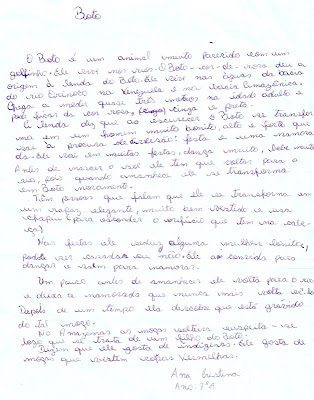 Boto
O Boto é um animal muito parecido com um
golfinho. Ele vive nos rios. O Boto-cor-de-rosa deu a
origem à lenda do Boto. Ele vive nas águas da bacia
do rio Orinoco na Venezuela e na bacia Amazônica.
Chega a medir quase três metros na idade adulta e
pode ficar da cor rosa, cinza e preta.
A lenda diz que ao escurecer o Boto se transfor
ma em um homem muito bonito, alto e forte que
vai à procura de diversão: festa e uma namora
da. Ele vai em muitas festas, dança muito, bebe muito
Antes de nascer o sol ele tem que voltar para o
rio, pois quando amanhece ele se transforma
em Boto novamente.
Têm pessoas que falam que ele se transforma em
um rapaz elegante, muito bem vestido e usa
chapéu (para esconder o orifício que tem na cabe-
ça)
Nas festas ele seduz alguma mulher bonita,
pode ser casada ou não. Ele as convida para
dançar e saem para namorar.
Um pouco antes de amanhecer ele volta para o rio
e deixa a namorada que nunca mais volta vê-lo
Depois de um tempo ela descobre que está grávida
do tal moço.
No Amazonas as moças solteiras suspeita-se
logo que se trata de um filho do Boto.
Dizem que ele gosta de indígenas. Ele gosta de
moças que vestem roupas vermelhas.
Ana Cristina
Ano: 7ºA